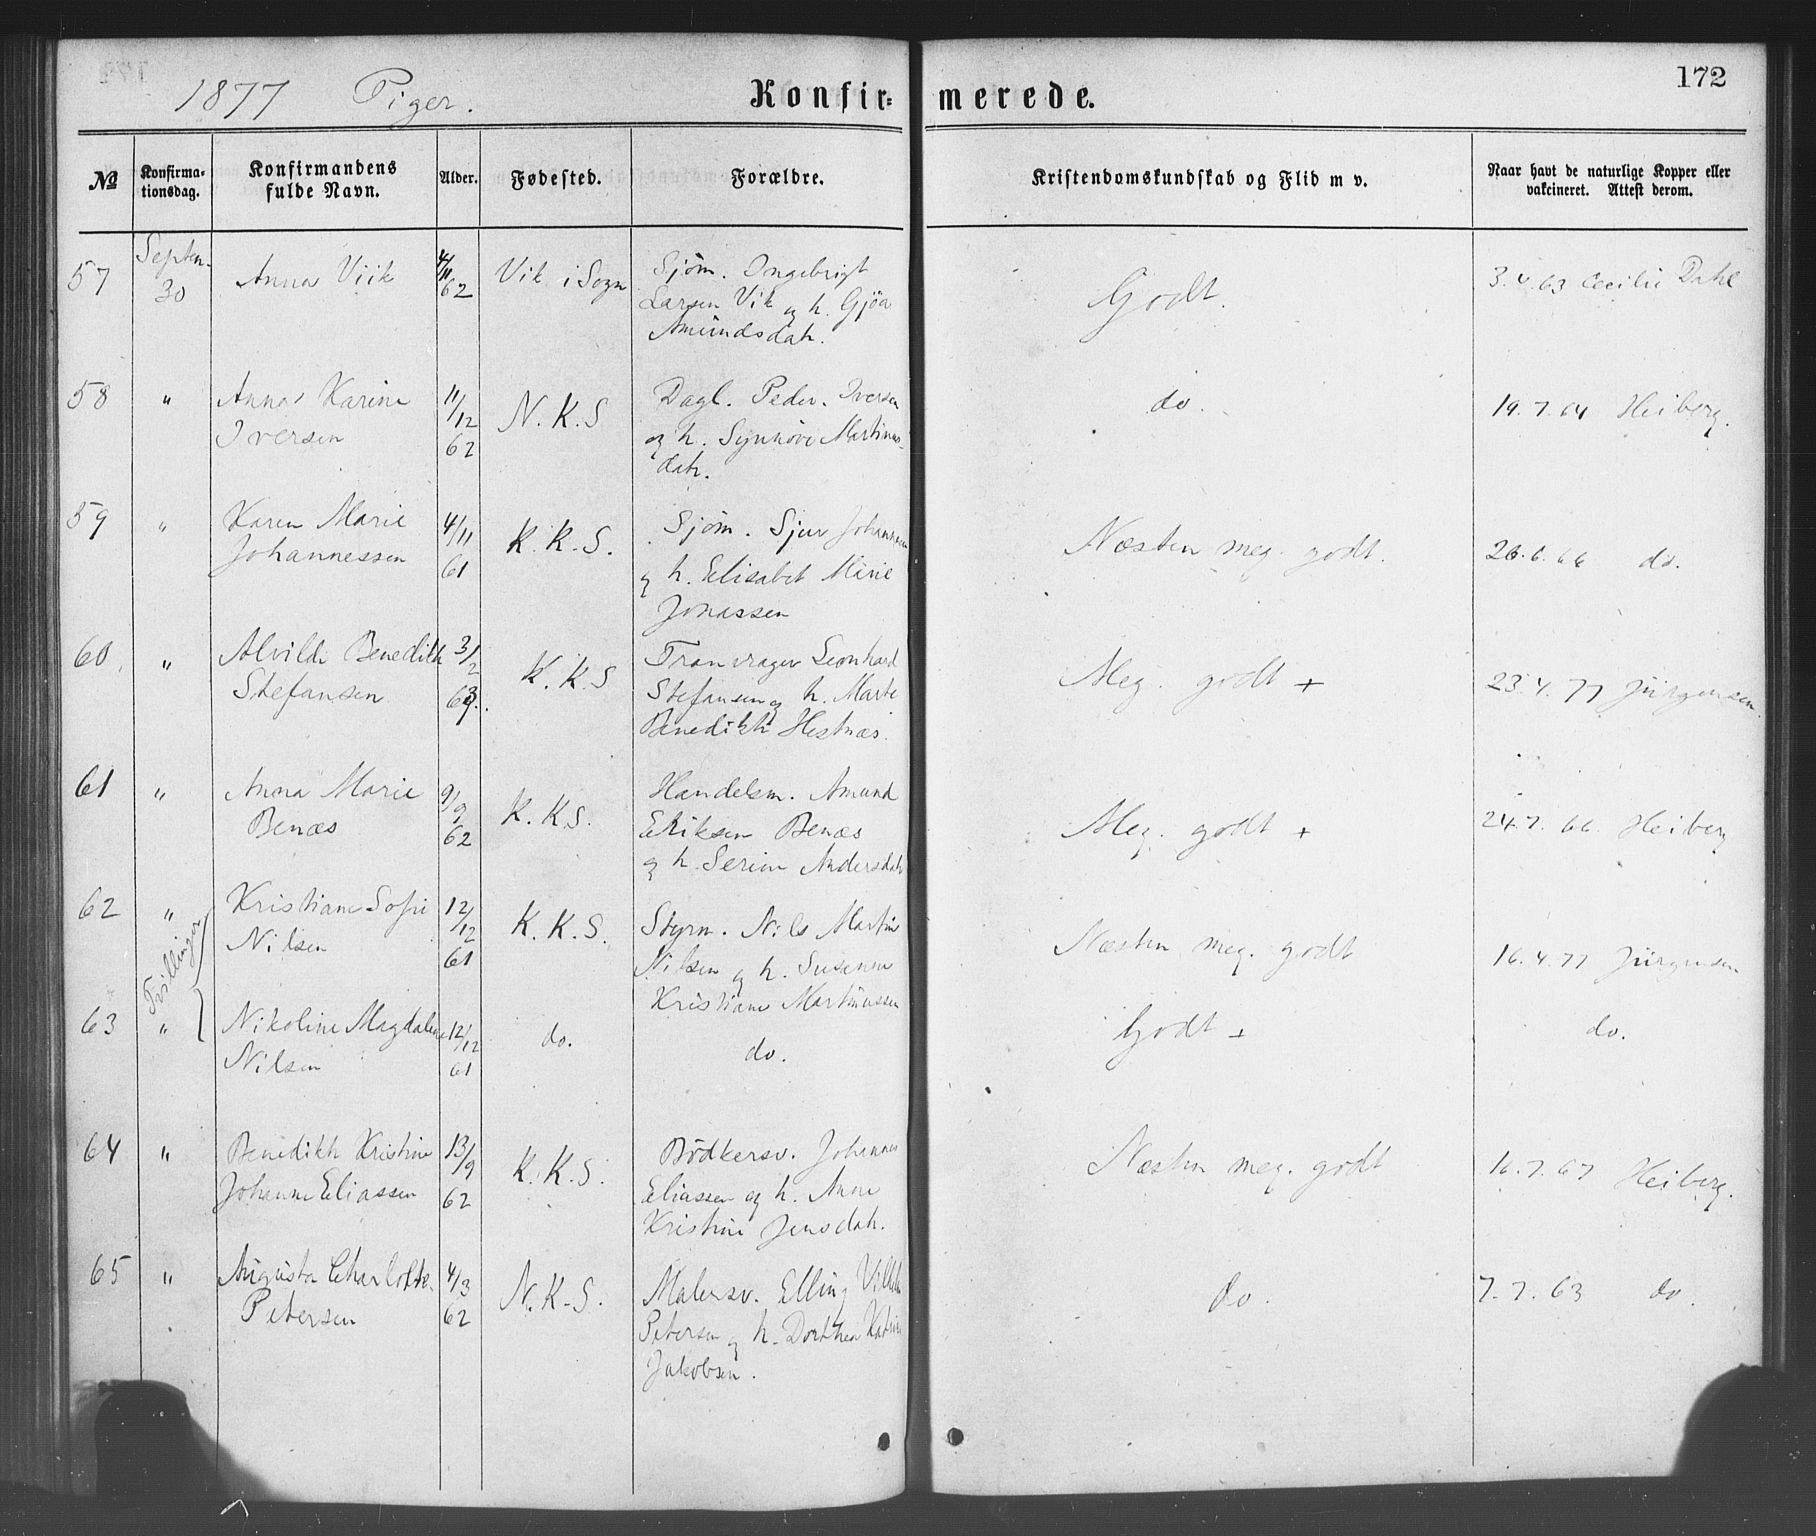 172
1877 Piger.
Konfir= merede.
No
Konfirma-
tionsdag.
Konfirmandens
fulde Navn.
Alder.
Fødested.
Forældre.
Kristendomskundskab og Flid m v.
Naar havt de naturlige Kopper eller
vakcineret. Attest derom.
57
Septem.
30
Anna Viik
4/11
62
Vik i Sogn
Sjøm. Ingebrigt
Larsen Vik og h. Gjøa
Amundsdatr.
Godt.
3.4.63 Cecilie Dahl
58
"
Anna Karine
Iversen
11/12
62
N. K. S
Dagl. Peder Iversen
og h. Synnøve Martinus-
datr.
do.
19.7.64 Heiberg.
59
"
Karen Marie
Johannessen
4/11
61
K. K. S.
Sjøm. Sjur Johannesen
og h. Elisabet Marie
Jonassen
Næsten meg. godt.
26.6.66 do.
60
"
Alvilde Benedikte
Stefansen
3/2
63
K. K. S
Tranvrager Leonhard
Stefansen og h. Marte
Benedikte Hestnæs.
Meg. godt +
23.4.77 Jürgensen
61
"
Anna Marie
Benæs
9/9
62
K. K. S.
Handelsm. Amund
Eriksen Benæs
og h. Serine Andersdatr
Meg. godt +
24.7.66. Heiberg
62
"
Tvillinger
Kristiane Sofie
Nilsen
12/12
61
K. K. S.
Styrm. Nils Martin
Nilsen og h. Susanne
Kristiane Martinussen
Næsten meg. godt
16.4.77 Jürgensen
63
"
Nikoline Magdalene
Nilsen
12/12
61
do.
do.
Godt +
do.
64
"
Benedikte Kristine
Johanne Eliassen
13/9
62
K. K. S.
Bødkersv. Johannes
Eliassen og h. Anne
Kristine Jensdatr.
Næsten meg. godt
16.7.67 Heiberg.
65
"
Augusta Charlotte
Petersen
4/3
62
N. K. S.
Malersv. Elling Vilhelm
Petersen og h. Dorthea Katrine
Jakobsen.
do.
7.7.63 do.